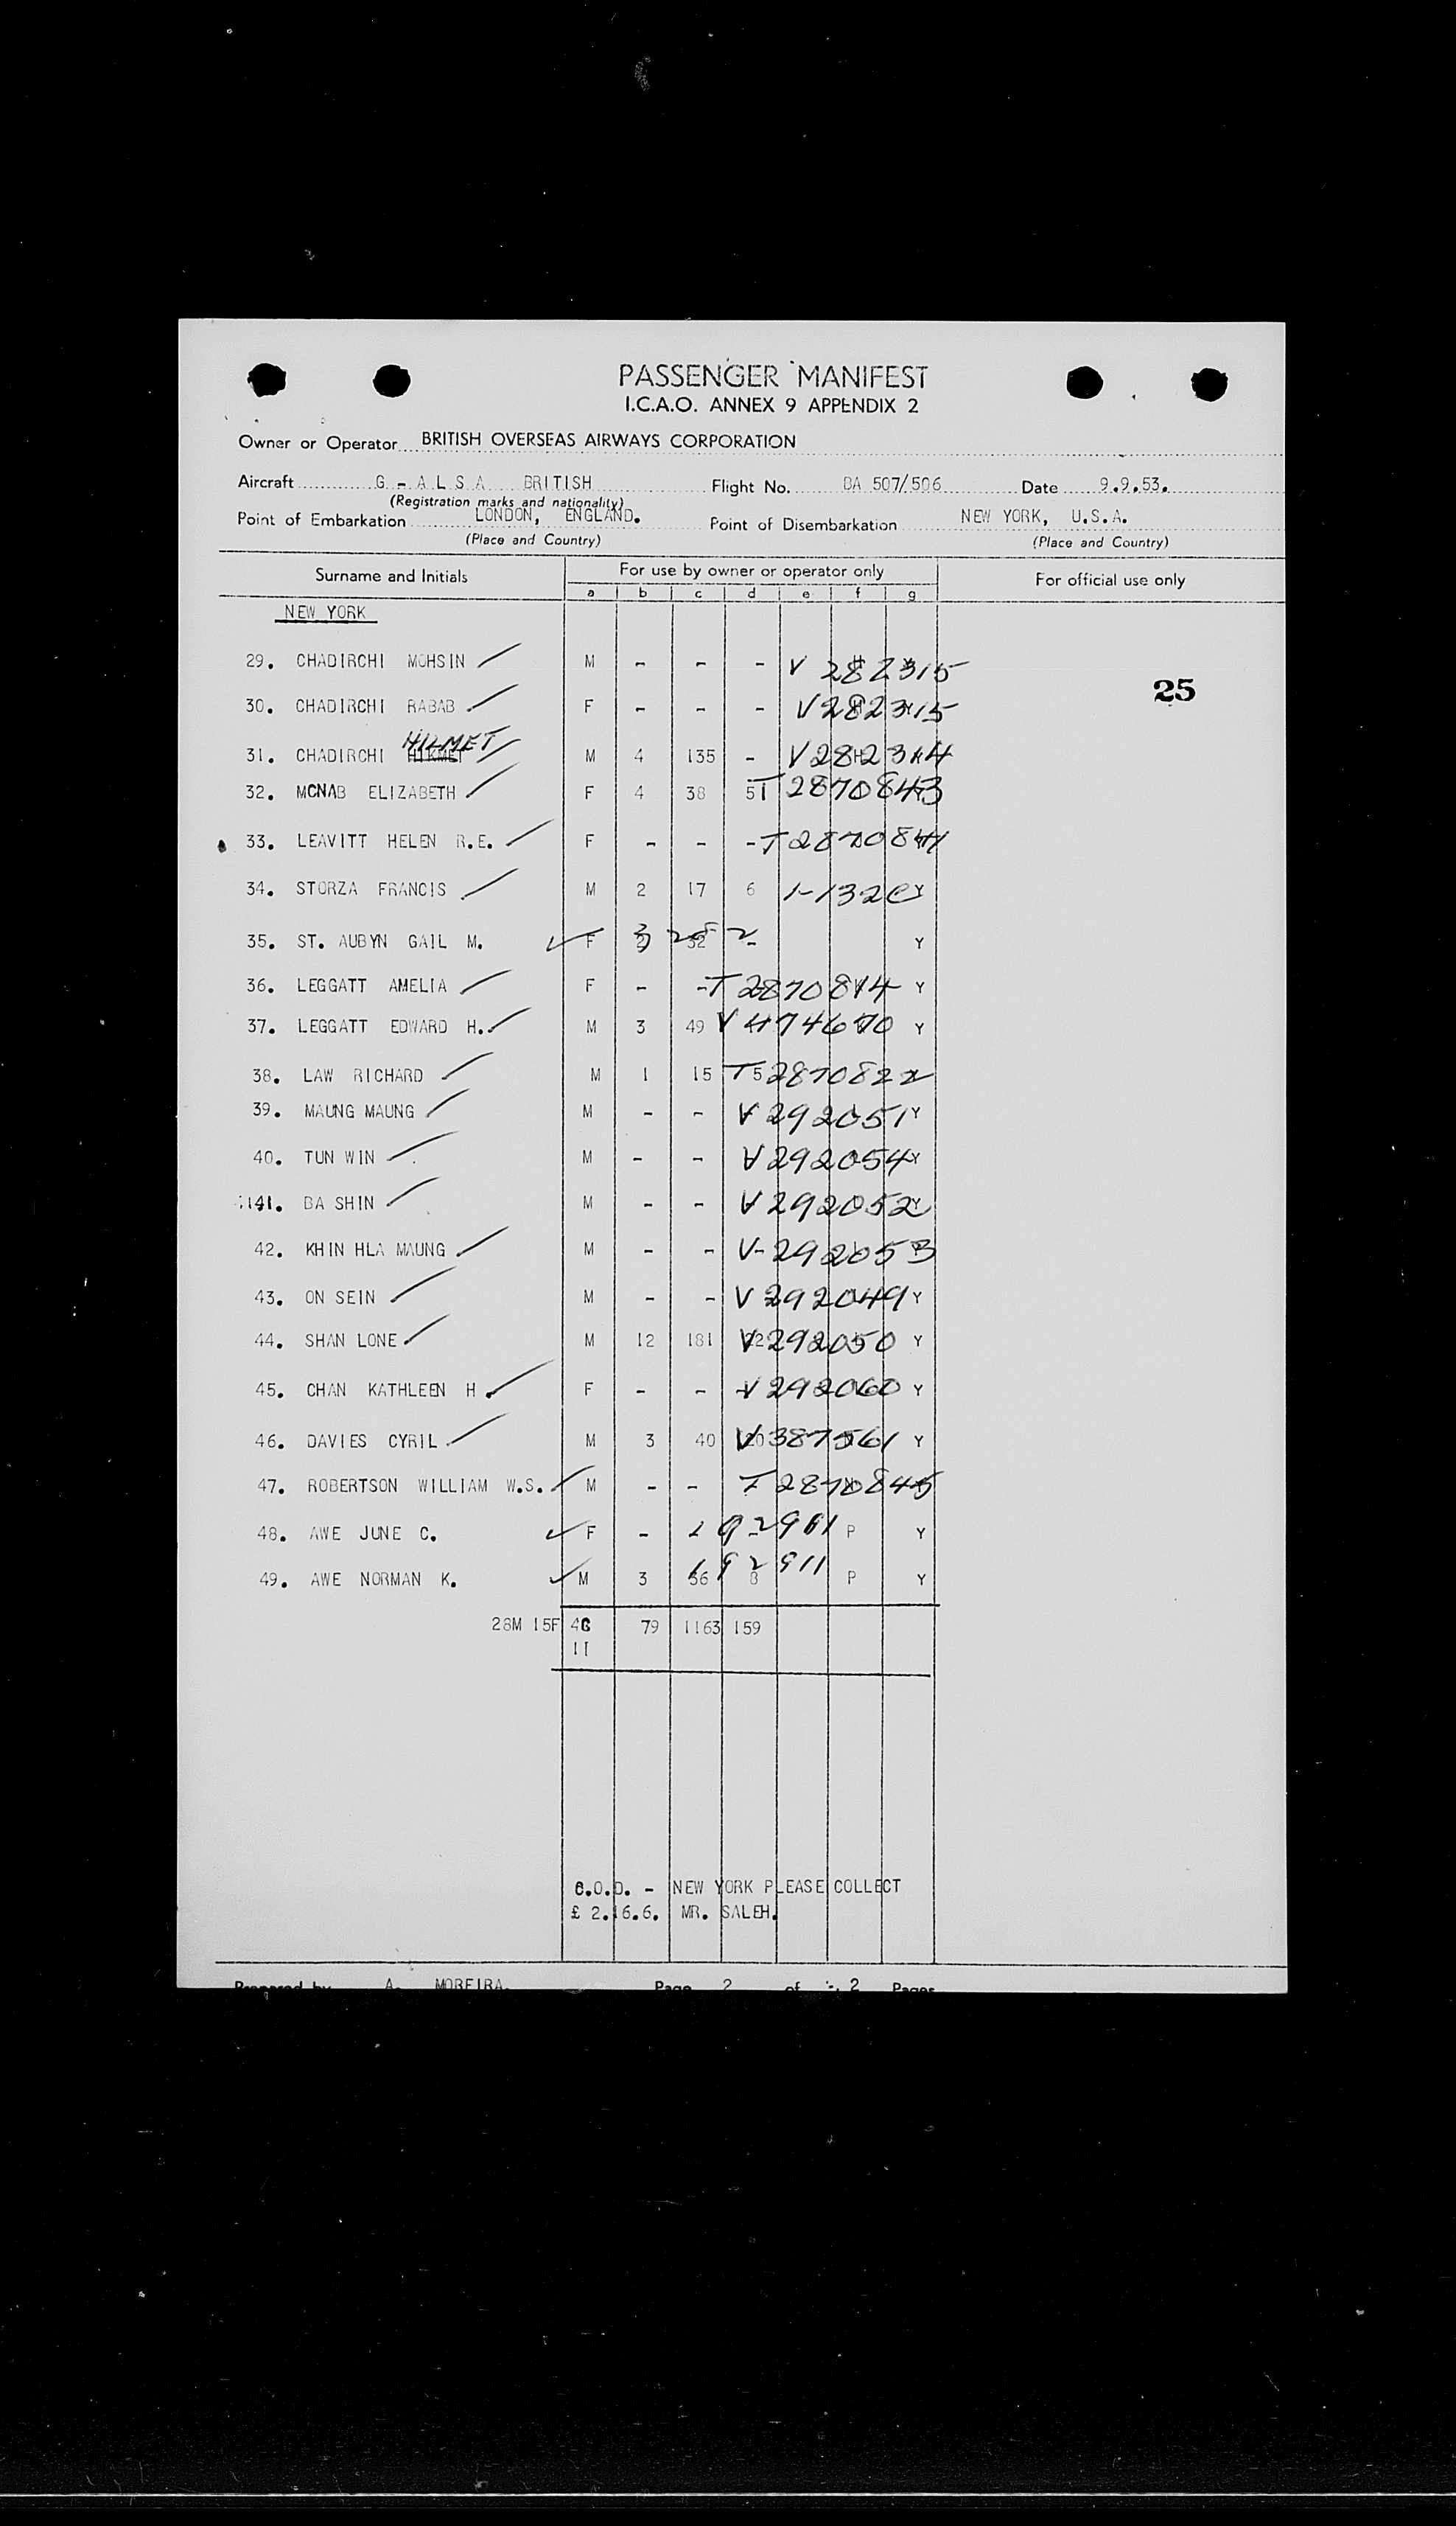 PASSENGER MANIFEST
I.C.A.O. ANNEX 9 APPENDIX 2
Owner or Operator BRITISH OVERSEAS AIRWAYS CORPORATION
Aircraft G - A L S A BRITISH Flight No. BA 507/506 Date 9.9.53.
(Registration marks and nationality)
Point of Embarkation LONDON, ENGLAND. Point of Disembarkation NEW YORK, U.S.A.
(Place and Country) (Place and Country)
Surname and Initials For use by owner or operator only For official use only
a b c d e f g
NEW YORK
29. CHADIRCHI MOHSIN M - - - V 282315
25
30. CHADIRCHI RABAB F - - - V282315
HILMET
31. CHADIRCHI HIKMET M 4 135 - V282314
32. MCNAB ELIZABETH F 4 38 51 T2870843
33. LEAVITT HELEN R.E. F - - - T2870841
34. STORZA FRANCIS M 2 17 6 1-132 Y
35. ST. AUBYN GAIL M. F 32 - Y
36. LEGGATT AMELIA F - - T2870814 Y
37. LEGGATT EDWARD H. M 3 49 V474670 Y
38. LAW RICHARD M 1 15 5 T2870822
39. MAUNG MAUNG M - - V292051 Y
40. TUN WIN M - - V292054 Y
41. BA SHIN M - - V292052 Y
42. KHIN HLA MAUNG M - - V-292053
43. ON SEIN M - - V292049 Y
44. SHAN LONE M 12 181 V292050 Y
45. CHAN KATHLEEN H. F - - V292060 Y
46. DAVIES CYRIL M 3 40 V387561 Y
47. ROBERTSON WILLIAM W.S. M - - T2870845
48. AWE JUNE C. F - - 192911 P Y
49. AWE NORMAN K. M 3 36 8 192911 P Y
28M 15F 79 1163 159
11
C.O.D. - NEW YORK PLEASE COLLECT
£ 2.16.6. MR. SALEH.
Prepared by A. MOREIRA. Page 2 of 2 Pages